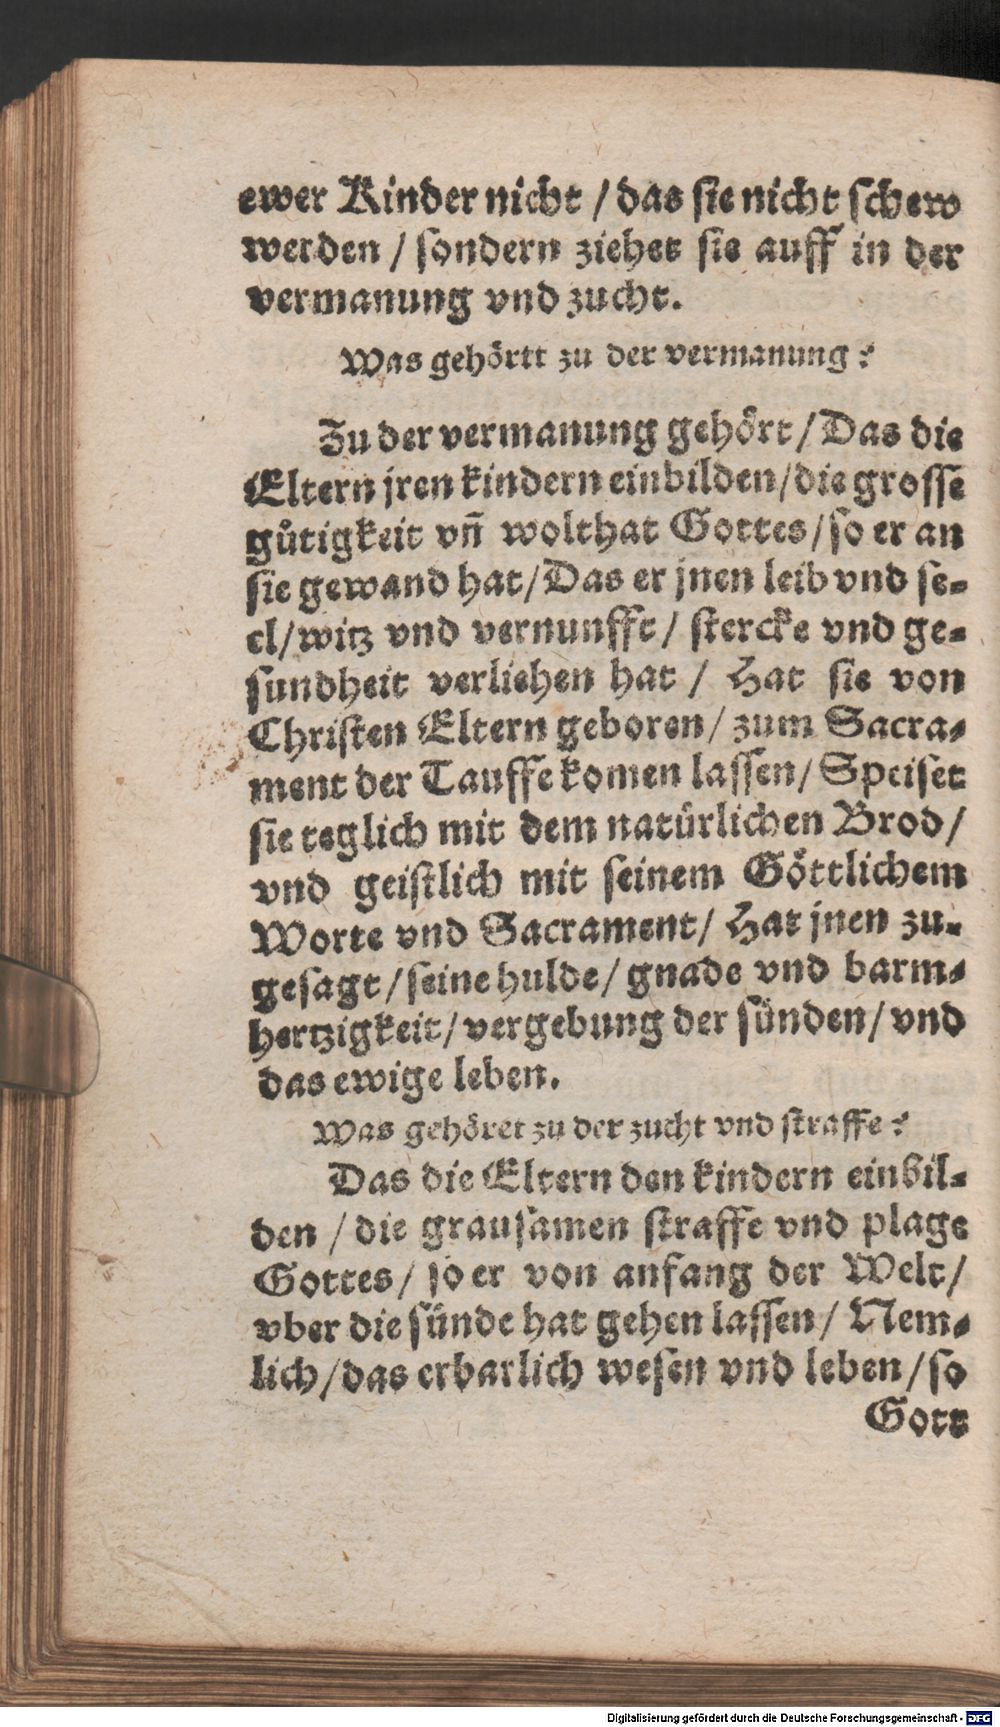 ewer Kinder nicht / das sie nicht schew
werden / sondern ziehet sie auff in der
vermanung vnd zucht.
Was gehörtt zu der vermanung?
Zu der vermanung gehört / Das die
Eltern jren kindern einbilden / die grosse
gütigkeit vñ wolthat Gottes / so er an
sie gewand hat / Das er jnen leib vnd se-
el / witz vnd vernunfft / stercke vnd ge-
sundheit verliehen hat / Hat sie von
Christen Eltern geboren / zum Sacra-
ment der Tauffe komen lassen / Speiset
sie teglich mit dem natürlichen Brod /
vnd geistlich mit seinem Göttlichem
Worte vnd Sacrament / Hat jnen zu-
gesagt / seine hulde / gnade vnd barm-
hertzigkeit / vergebung der sünden / vnd
das ewige leben.
Was gehöret zu der zucht vnd straffe?
Das die Eltern den kindern einbil-
den / die grausamen straffe vnd plage
Gottes / so er von anfang der Welt /
vber die sünde hat gehen lassen / Nem-
lich / das erbarlich wesen vnd leben / so
Gott
Digitalisierung gefördert durch die Deutsche Forschungsgemeinschaft - DFG